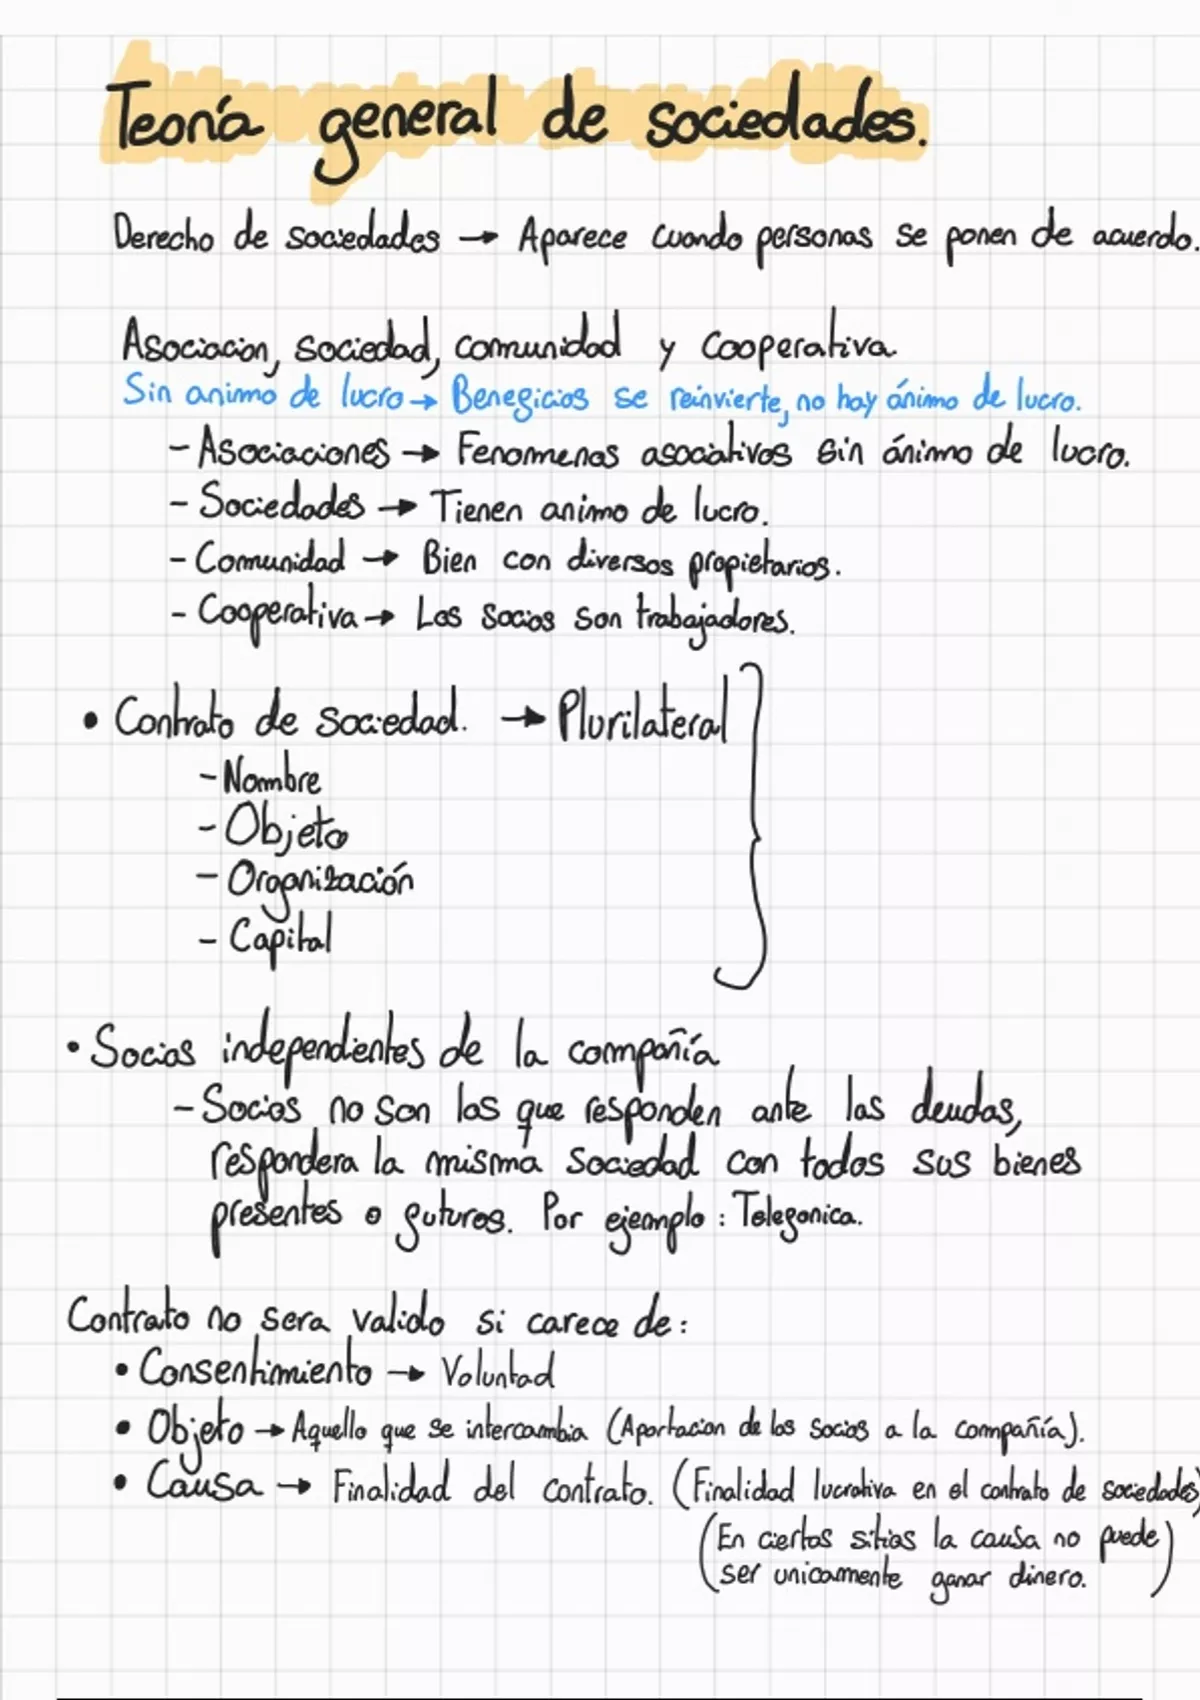 Teoría general de sociedades.
Derecho de sociedades → Aparece cuando personas se ponen de acuerdo.
Asociacion, sociedad, comunidad y cooperativa.
Sin animo de lucro → Beneficios se reinvierte, no hay ánimo de lucro.
- Asociaciones → Fenomenos asociativos sin ánimo de lucro.
- Sociedades → Tienen animo de lucro.
- Comunidad → Bien con diversos propietarios.
- Cooperativa → Los socios son trabajadores.
• Contrato de sociedad. → Plurilateral
- Nombre
- Objeto
- Organización
- Capital
• Socios independientes de la compañía
- Socios no son los que responden ante las deudas,
respondera la misma sociedad con todos sus bienes
presentes o futuros. Por ejemplo: Telefonica.
Contrato no sera valido si carece de:
• Consentimiento → Voluntad
• Objeto → Aquello que se intercambia (Aportacion de los socios a la compañía).
• Causa → Finalidad del contrato. (Finalidad lucrativa en el contrato de sociedades)
(En ciertos sitios la causa no puede
ser unicamente ganar dinero.)